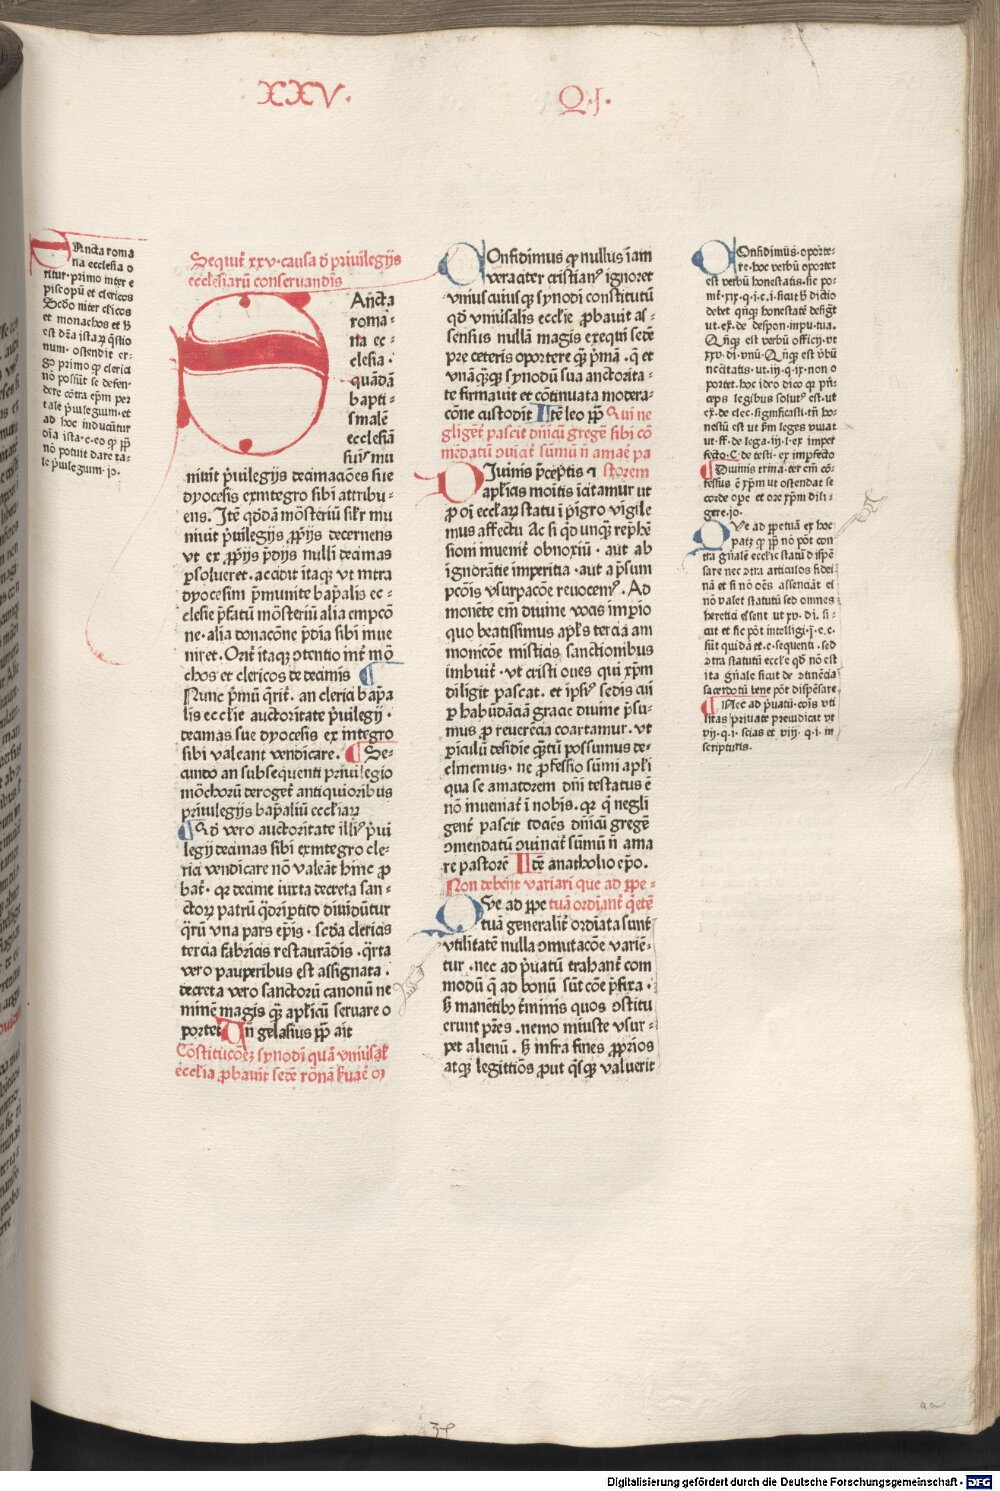 XXV.
Q.I.
Ancta romā
na ecclesia o
ritur. primo inter e
piscopū et clericos
Scđo niter cłicos
et monachos et ħ
est dña ista quæstio
num. ostendit er-
go primo q̃ clerici
nō possūt se defen-
dere cōtra ep̄m per
tale p̄uilegium. et
ad hoc inducūtur
nō potuit dare ta-
le p̄uilegium. jo.
Sequit̄ xxv. causa đ priuilegijs
ecclesiarū conseruandis
Ancta
romā-
na ec-
clesia.
quādā
bapti-
smalē
ecclesiā
suis mu
niuit p̄uilegijs decimacōes sue
dyocesis ex integro sibi attribu-
ens. Itē q̄dā mōsteriū silr mu
niuit p̄uilegijs p̱p̄ijs decernens
vt ex p̱p̄ijs p̄dijs nulli decimas
p̱solueret. accidit itaq; vt intra
dyocesim p̄munite bap̄alis ec-
clesie p̄fatū mōsteriū alia empcō
ne. alia donacōne p̄dia sibi inue
niret. Orit̄ itaq; ↄtentio int̄ mō
chos et clericos de decimis
Nunc p̄mū q̄rit̄. an clerici bap̄a
lis ecclie auctoritate p̄uilegij.
decimas sue dyocesis ex integro
sibi valeant vendicare. Se-
cundo an subsequenti priuilegio
mōchorū deroget̄ antiquioribus
priuilegijs bap̄aliū eccliaꝝ
Qđ vero auctoritate illiꝰ p̄ui
legij decimas sibi ex integro cle-
rici vendicare nō valeāt hinc p̱
bat̄. qꝛ decime iuxta decreta san-
ctoꝝ patrū q̄dripertito diuidūtur
q̄rū vna pars ep̄is. scđa clericis
tercia fabricis restaurādis. q̄rta
vero pauperibus est assignata.
decreta vero sanctorū canonū ne
minē magis q̄ꝫ ap̄licū seruare o
portet Vn gelasius p̱p̱ ait
Cōstitucōeꝫ synodi quā vniu̇sal̄
eccl̄ia p̱bauit sedē rōnā
Onfidimus ꝙ nullus iam
veraciter cristianꝰ ignoret
vniuscuiusq; synodi constitutū
qđ vniu̇salis ecclie p̱bauit as-
sensus nullā magis exequi sedē
pre ceteris oportere q̄ꝫ p̄mā. q̄ et
vnāq̄q; synodū sua auctorita-
te firmauit et cōtinuata modera-
cōne custodit Itē leo p̱p̱ Qui ne
gliget̄ pascit dn̄icū gregē sibi cō
mēdatū ↄuicit̄ sūmū n̄ amaē pa
storem
Iuinis p̄ceptis ⁊
ap̄licis monitis icitamur ut
p̱ oī eccliaꝝ statu ī pigro vigile
mus affectu Ac si qđ unq̄ꝫ rep̄hē
sioni inuenit̄ obnoxiū. aut ab
ignorātie imperitia. aut a p̄sum
pcōis vsurpacōe reuocemꝰ. Ad
monēte em̄ diuine vocis impio
quo beatissimus apl̄s tercia am
monicōe misticis sanctionibus
imbuit̄. vt cristi oues qui xp̄m
diligit pascat. et ip̄siꝰ sedis cui
p̱ habūdāciā gracie diuine p̄su-
mus p̱ reuerēcia coartamur. vt
p̱iculū desidie q̄tū possumus de-
clinemus. ne p̱fessio sūmi ap̄li
qua se amatorem dn̄i testatus ē
nō inueniat̄ i nobis. qꝛ q̄ negli
gent̄ pascit tociēs dn̄icū gregē
ↄmendatū ↄuincit̄ sūmū n̄ ama
re pastorē Itē anatholio ep̄o.
Non debent̄ variari que ad p̱pe-
tuā ordiant̄ q̄etē
Ve ad p̱pe
tuā generalit̄ ordiata sunt
vtilitatē nulla ↄmutacōe varie-
tur. nec ad p̄uatū trahant̄ com
modū q̄ ad bonū sūt cōe p̄fixa.
ħ manētibꝫ t̄minis quos ↄstitu
erunt p̄res. nemo iniuste vsur-
pet alienū. ħ infra fines p̱p̄ios
atq; legittiōs p̱ut q̄sq; valuerit
Onfidimus. oporte-
re. hoc verbū oportet
est verbū honestatis. sic po-
debet q̄nq; honestatē desigt̄
ut. ex̄. de despon. inpu. tua.
Q̄nq; est verbū officij. vt
xxv. di. vnū. Q̄nq; est v̄bū
necitatis. ut. iij. q. ix. non o
portet. hoc ideo dico q̄ p̄n
ceps legibus solutꝰ est. ut
ex̄. de elec. significasti. tn̄ ho-
nestū est ut p̱m leges viuat
ut. ff. de lega. iij. l. ex imper
fecto. C. de testi. ex imp̱fecto
Diuinis trina. ter em̄ cō-
fessus ē xp̄m ut ostendat se
corde ope et ore xp̄m dili-
gere. jo.
Ve ad p̱petuā ex hoc
patꝫ q̄ p̱p̱ nō pōt con
tra gn̄ale ecclie statū dispē
sare nec ↄtra articulos fidei
nā et si nō oēs assenciāt ei
nō valet statutū sed omnes
heretici essent ut xv. di. si-
cut et sic pōt intelligi. j. e. c.
sūt quidā et. c. sequenti. sed
ↄtra statutū eccl̄e qđ nō est
ita gn̄ale sicut de ↄtinēcia
sacerdotū bene pōt dispēsare
Nec ad p̄uatū. cōis vti
litas priuate preiudicat vt
vij. q. i. scias et viij. q. i. in
scripturis.
Digitalisierung gefördert durch die Deutsche Forschungsgemeinschaft - DFG